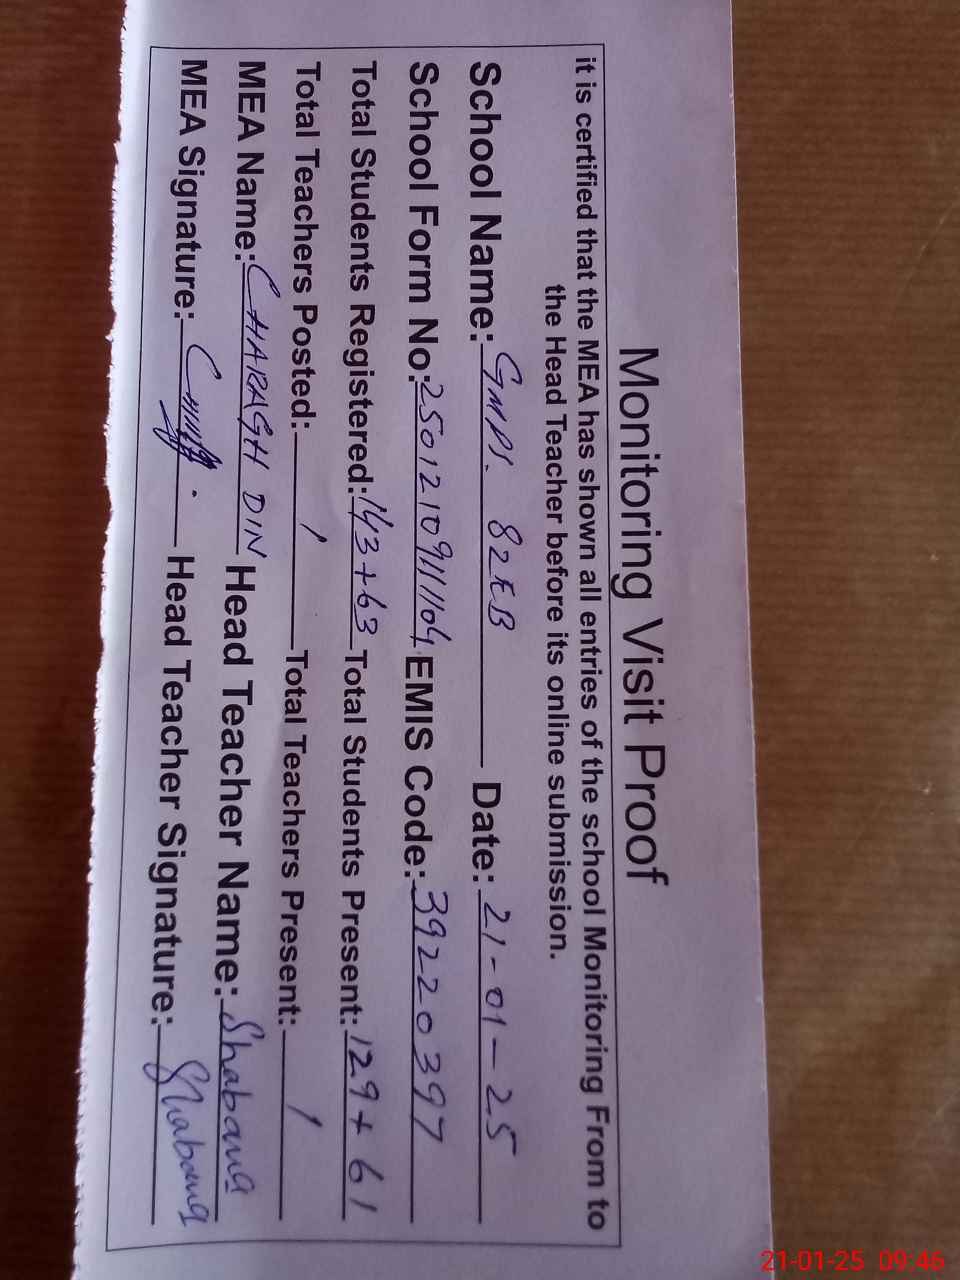 Monitoring Visit Proof
it is certified that the MEA has shown all entries of the school Monitoring From to
the Head Teacher before its online submission.
School Name: GMPS. 82EB Date: 21-01-25
School Form No: 2501210911104 EMIS Code: 39220397
Total Students Registered: 143+63 Total Students Present: 129+61
Total Teachers Posted: 1 Total Teachers Present: 1
MEA Name: CHARAGH DIN Head Teacher Name: Shabana
MEA Signature: Head Teacher Signature: Shabana
21-01-25 09:46